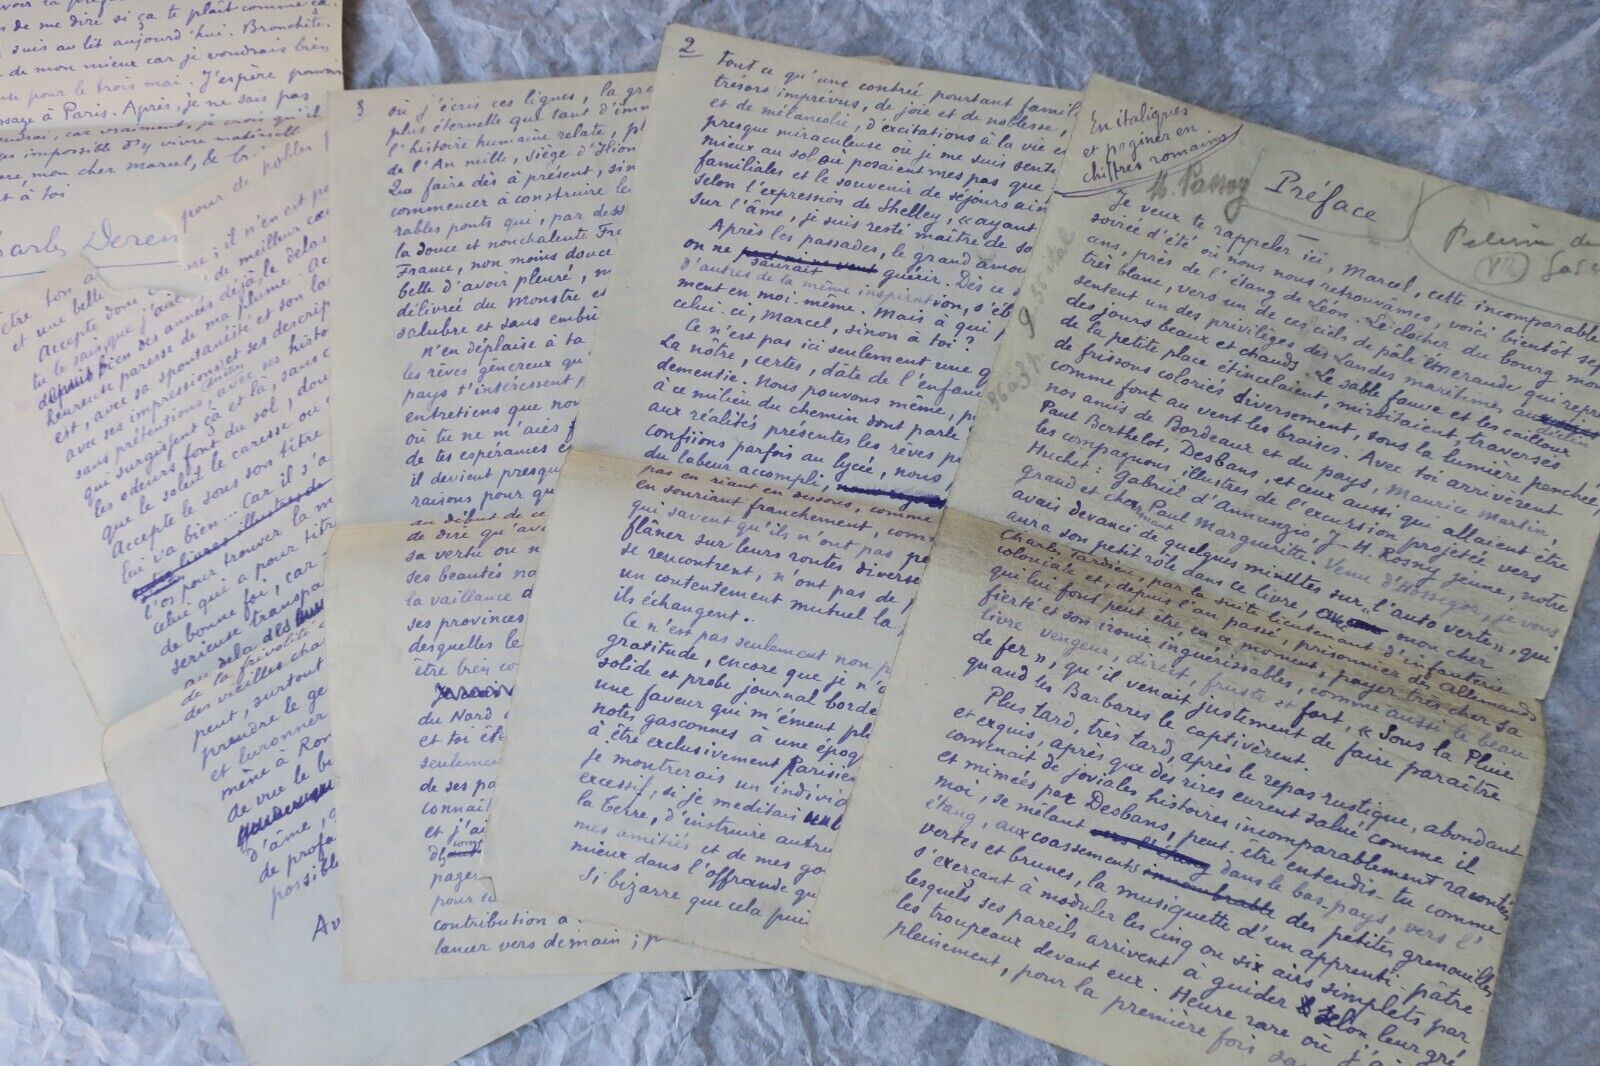 En italiques
et paginer en
chiffres romains
Préface
Je veux te rappeler ici, Marcel, cette incomparable
soirée d'été où nous nous retrouvâmes, voici bientôt sept
ans, près de l'étang de Léon. Le clocher du bourg mon
très blanc, vers un de ces ciels de pâle émeraude qui repré
sentent un des privilèges des Landes maritimes au déclin
des jours beaux et chauds. Le sable fauve et les cailloux
de la petite place étincelaient, miroitaient, traversés
de frissons coloriés diversement, sous la lumière penchée,
comme font au vent les braises. Avec toi arrivèrent
nos amis de Bordeaux et du pays, Maurice Martin,
Paul Berthelot, Desbans, et ceux aussi qui allaient être
les compagnons illustres de l'excursion projetée vers
Huchet: Gabriel d'Annunzio, J-H. Rosny jeune, notre
grand et charmant Paul Margueritte. Venu d'Hossegor, je vous
avais devancé de quelques minutes sur "l'auto verte", qui
aura son petit rôle dans ce livre, mon cher
Charles Tardieu, par la suite lieutenant d'infanterie
coloniale et, depuis l'an passé, prisonnier des allemands
qui lui font, peut être, en ce moment, payer très cher sa
fierté et son ironie inguérissables, comme aussi le beau
livre vengeur, direct, fruste et fort, « Sous la Pluie
de fer », qu'il venait justement de faire paraître
quand les Barbares le captivèrent.
Plus tard, très tard, après le repas rustique, abondant
et exquis, après que des rires eurent salué comme il
convenait de joviales histoires incomparablement racontées
et mimées par Desbans, peut-être entendis-tu comme
moi, se mêlant dans le bas-pays, vers l'
étang, aux coassements des petites grenouilles
vertes et brunes, la musiquette d'un apprenti-pâtre
s'exerçant à moduler les cinq ou six airs simplets par
lesquels ses pareils arrivent à guider selon leur gré
les troupeaux devant eux. Heure rare où j'ai
pleinement, pour la première fois
2
Tout ce qu'une contrée pourtant famil
trésors imprévus, de joie et de noblesse,
et de mélancolie, d'excitations à la vie e
presque miraculeuse où je me suis senti
mieux au sol où posaient mes pas que
familiales et le souvenir de séjours ain
selon l'expression de Shelley, « ayant
sur l'âme, je suis resté maître de so
Après les passades, le grand amou
on ne saurait guérir. Dès ce s
d'autres de la même inspiration, s'éb
ment en moi-même. Mais à qui
celui-ci, Marcel, sinon à toi?
Ce n'est pas ici seulement une q
La nôtre, certes, date de l'enfan
dementie. Nous pouvons même, p
à ce milieu du chemin dont parle
aux réalités présentes les rêves p
confiions parfois au lycée, nous
du labeur accompli,
pas en riant en dessous, comme
en souriant franchement, com
qui savent qu'ils n'ont pas pe
flâner sur leurs routes diverse
se rencontrent, n'ont pas de
un contentement mutuel la
ils échangent..
Ce n'est pas seulement non p
gratitude, encore que je n'a
solide et probe journal borde
une faveur qui m'émeut pl
notes gasconnes à une époq
à être exclusivement Parisie
je montrerais un individ
excessif, si je méditais
la Terre, d'instruire autru
mes amitiés et de mes go
mieux dans l'offrande qu
Si bizarre que cela pui
3
où j'écris ces lignes, la gra
plus éternelle que tant d'imm
l'histoire humaine relate, pl
de l'An mille, siège d'Ilion
Que faire dès à présent, sin
commencer à construire le
rables ponts qui, par dess
la douce et nonchalente Fr
France, non moins douce
belle d'avoir pleuré, m
délivrée du Monstre et
salubre et sans embû
N'en déplaise à ta
les rêves généreux qu
pays t'intéressent,
entretiens que nou
où tu ne m'aies
de tes espérances e
il devient presqu
raisons pour qu
au début de ce
de dire qu'av
sa vertu ou n
ses beautés na
la vaillance d
ses provinces
desquelles le
être bien co
du Nord
et toi ête
seulemen
de ses pa
connaît
et j'ai
pager
pour eu
contribution a
lancer vers demain; p
pour de nobles
être ton a
et une belle
Accepte donc
tu le sais, que j'ai
depuis bien des années déjà, le délas
heureuse paresse de ma plume. Ac
est, avec sa spontanéité et son la
avec ses impressions et ses descrip
sans prétentions, avec ses histo
qui surgissent çà et là, sans c
les odeurs font du sol, dou
que le soleil le caresse ou
Accepte le sous son titre
lui va bien... Car il s'a
l'os pour trouver la m
celui qui a pour titre
de bonne foi, car
sérieuse transpa
au delà des
de la frivolité
des vieilles cha
peut, surtout
prendre le ge
et luronner
mène à Ron
de vue le bu
d'âme, q
de profe
possible
Av
de me dire si ça te plaît comme ça.
suis au lit aujourd'hui. Bronchite.
de mon mieux car je voudrais bien
pour le trois mai. J'espère pouvoir
à Paris. Après, je ne sais pas
car vraiment, je crois qu'il
impossible d'y vivre matériell
mon cher Marcel,
t à toi
Charles Deren